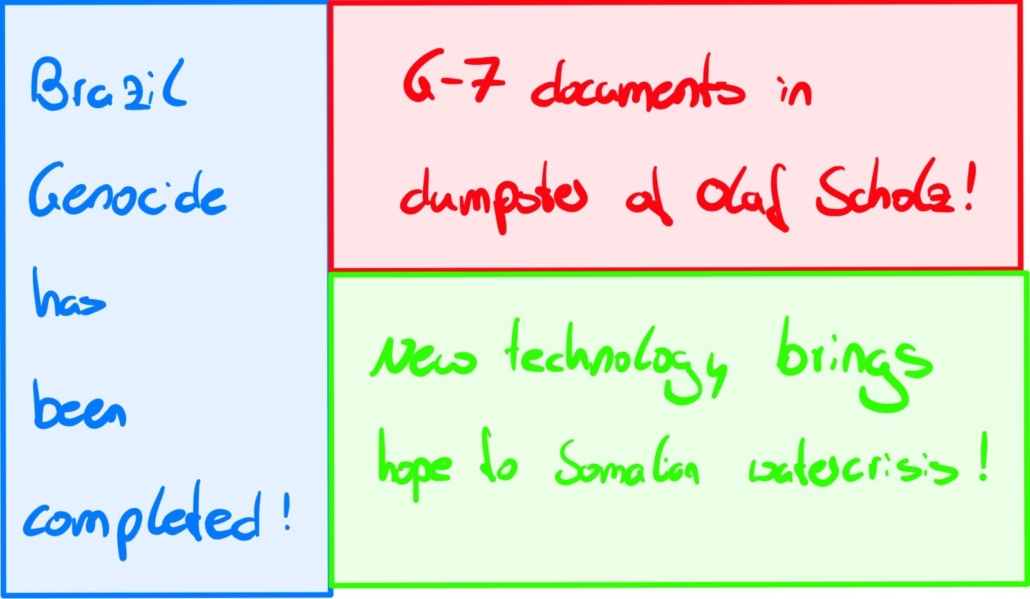 Brazil
Genocide
has
been
completed!
G-7 documents in
dumpster of Olaf Scholz!
New technology brings
hope to Somalian watercrisis!